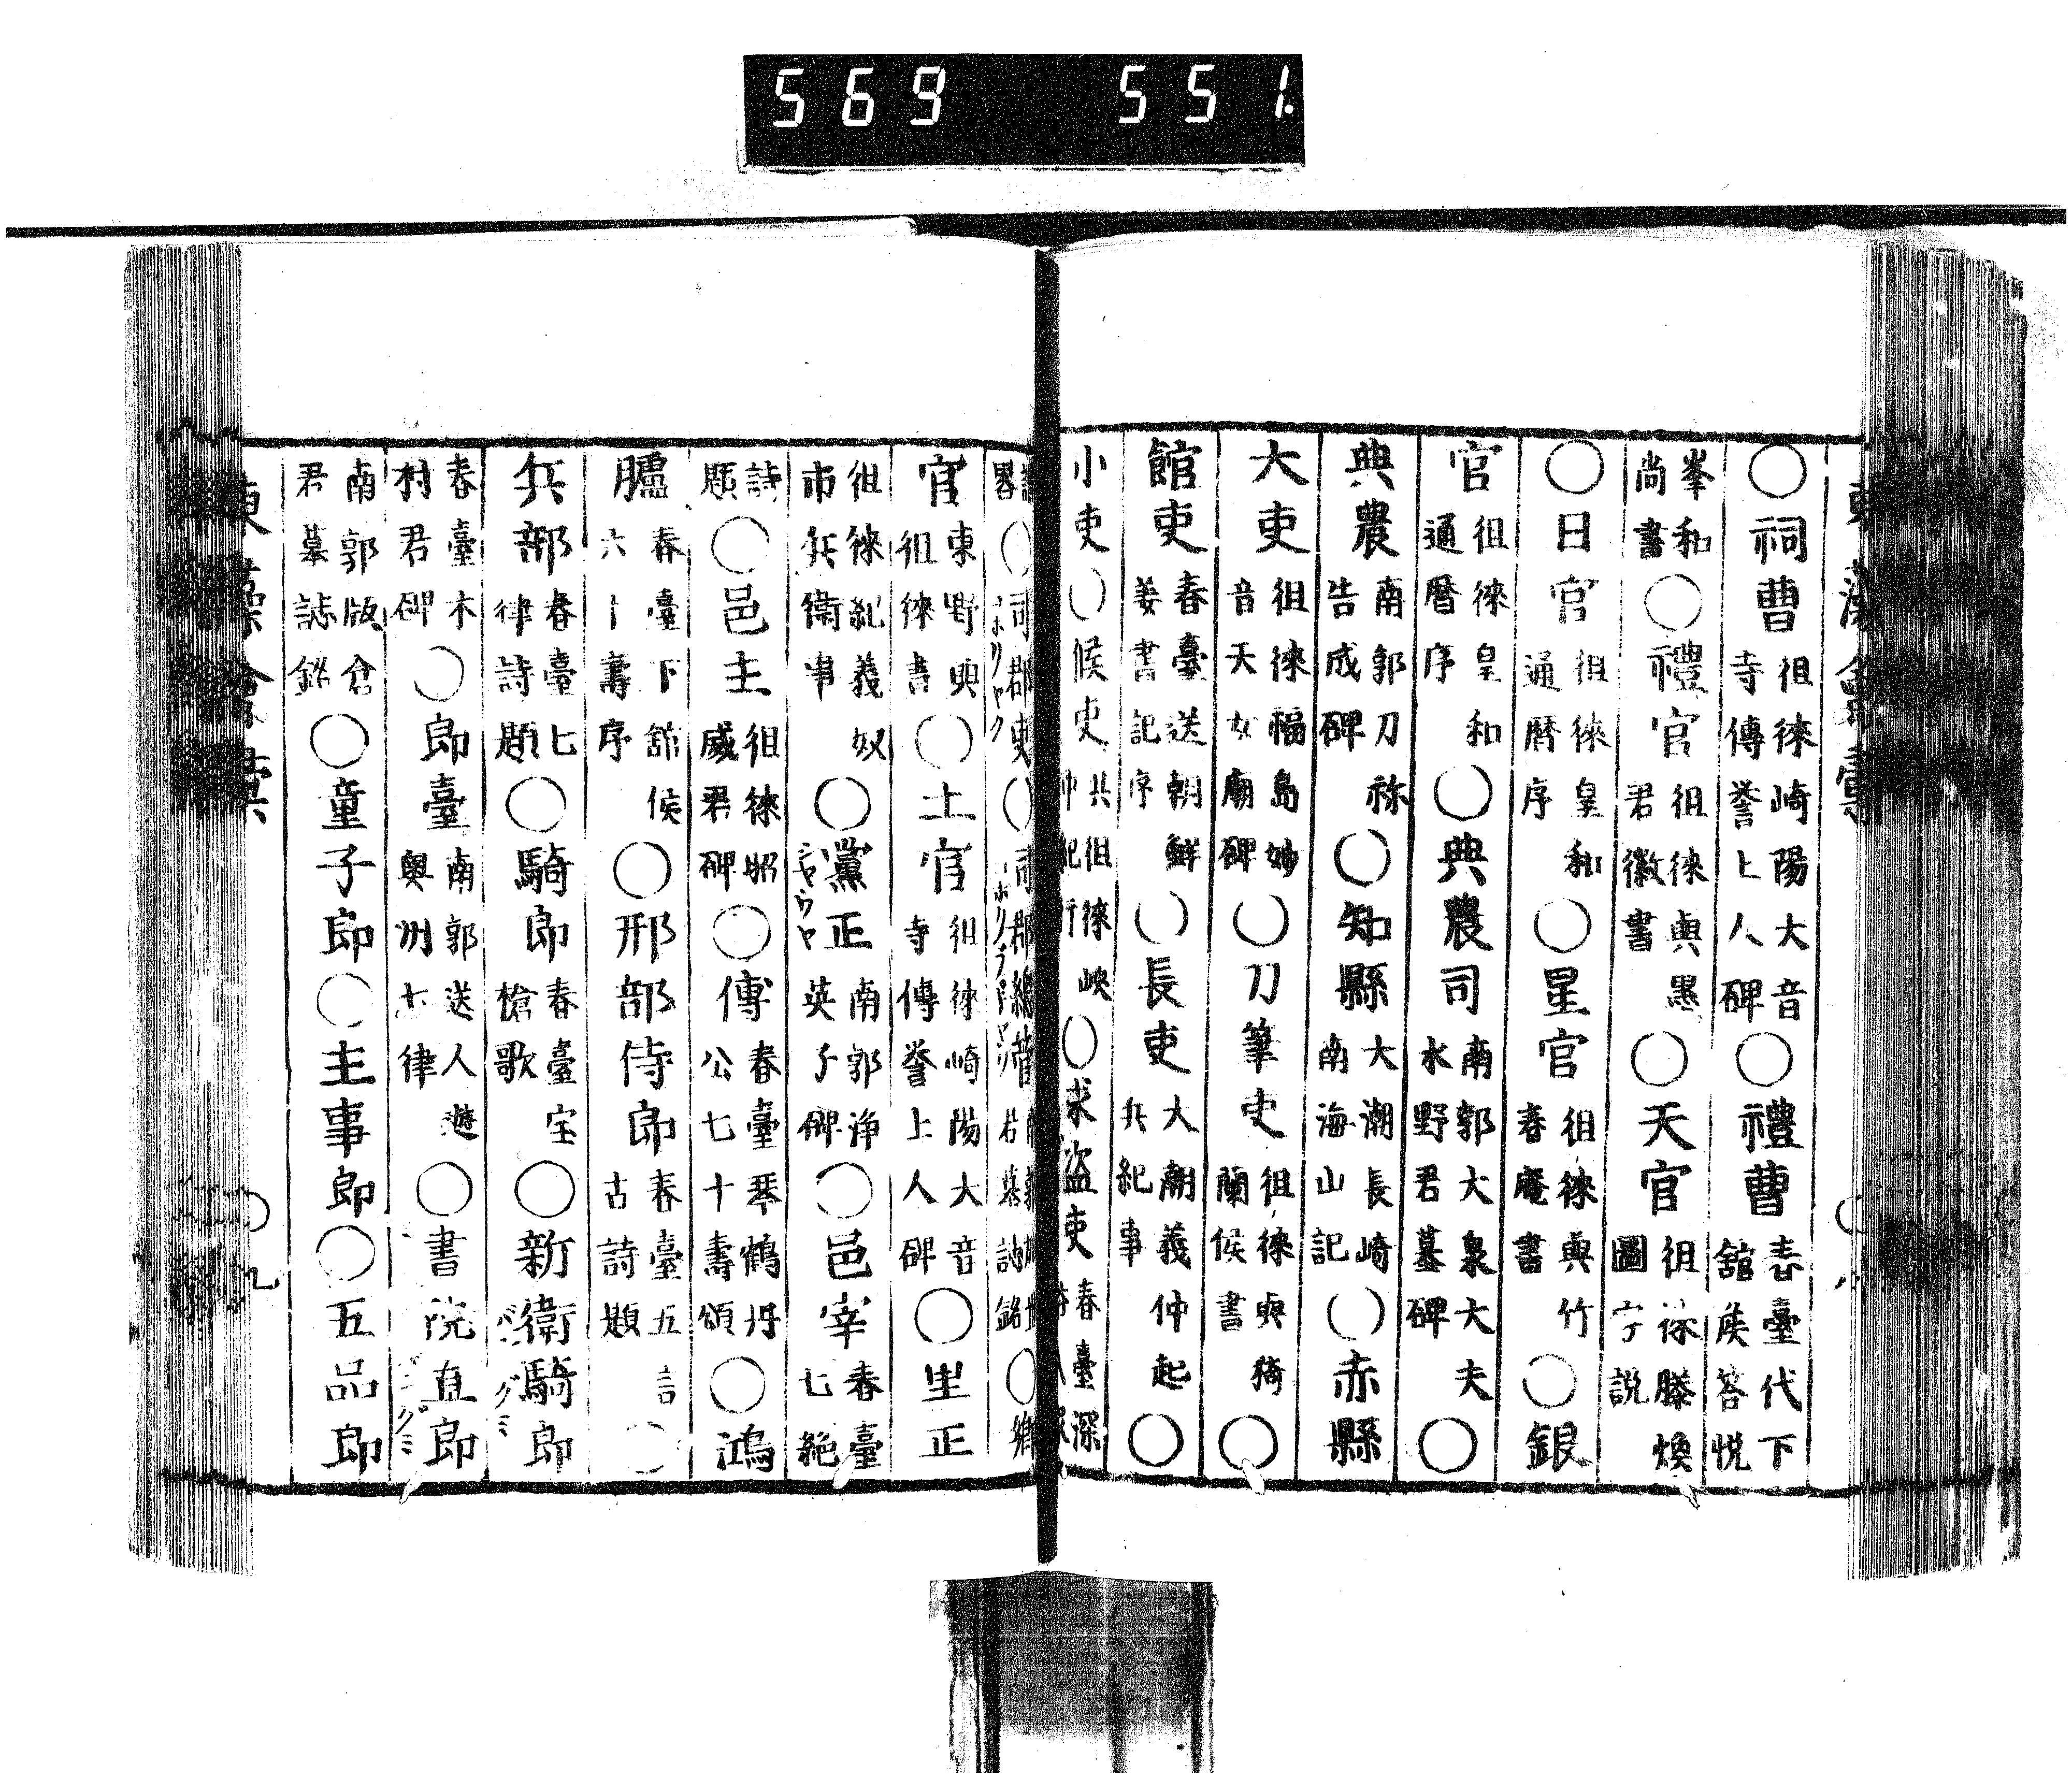 569 551.
○祠曹徂徠崎陽大音寺傳誉上人碑○禮曹春臺代下舘矦答悅
峯和尚書○禮官徂徠與墨君徽書○天官徂徠滕煥圖字説
○日官徂徠皇和通暦序○星官徂徠與竹春庵書○銀
官徂徠皇和通暦序○典農司南郭大泉大夫水野君墓碑○
典農南郭刀祢告成碑○知縣大潮長崎南海山記○赤縣
大吏徂徠福島妙音天女廟碑○刀筆吏徂徠與猗蘭侯書○
館吏春臺送朝鮮姜書記序○長吏大潮義仲起兵紀事○
小吏○候吏徂徠峽○求盗吏春臺深
○司郡吏○○郷
官東野與徂徠書○士官徂徠崎陽大音寺傳誉上人碑○里正
徂徠紀義奴市兵衛事○黨正南郭浄英子碑○邑宰春臺七絶
詩題○邑主徂徠昭威君碑○傳春臺琴鶴丹公七十壽頌○鴻
臚春臺下舘侯六十壽序○邢部侍郎春臺五言古詩題○
兵部春臺七律詩題○騎郎春臺宝槍歌○新衛騎郎
春臺木村君碑○郎臺南郭送人遊奥州七律○書院直郎
南郭版倉君墓誌銘○童子郎○主事郎○五品郎